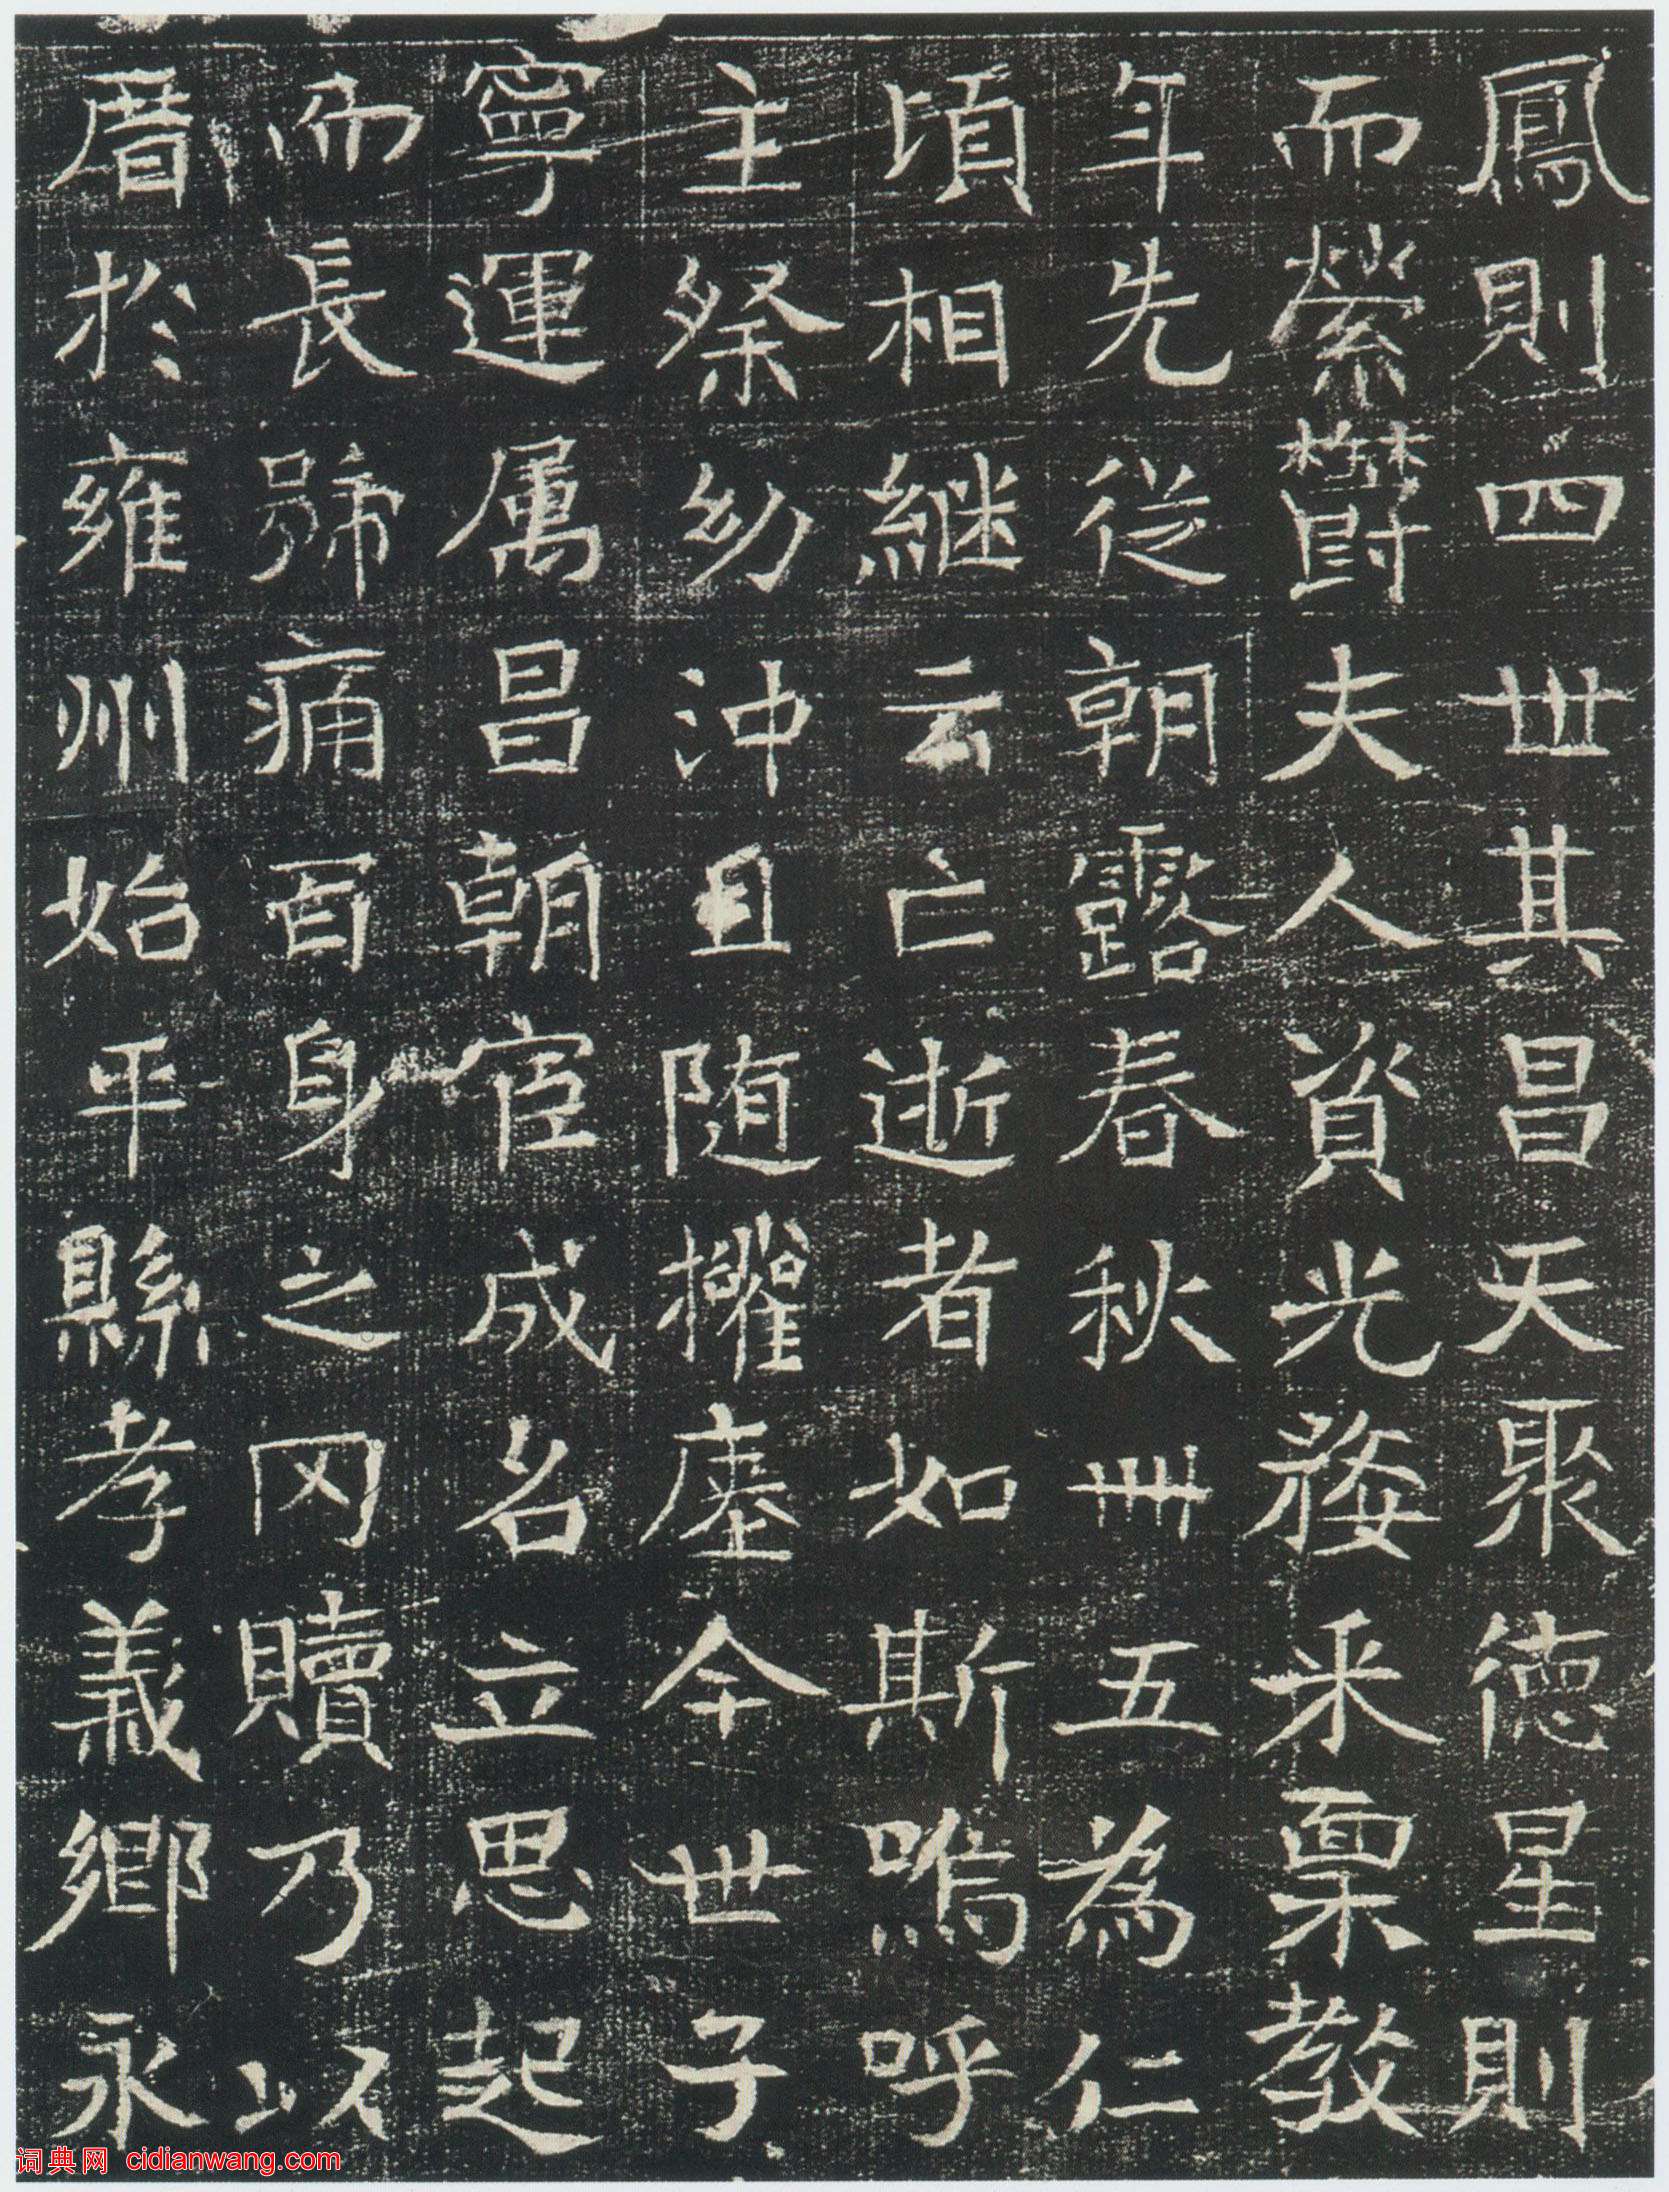 鳳則四世其昌天聚德星則
而縈欝夫人資光婺釆稟教
年先従朝露春秋卌五為仁
頃相継云亡逝者如斯嗚呼
主祭幼沖且随權塵今世子
寧運属昌朝宦成名立思起
而長號痛百身之罔贖乃以
厝於雍州始平縣孝義鄉永
词典网 cidianwang.com